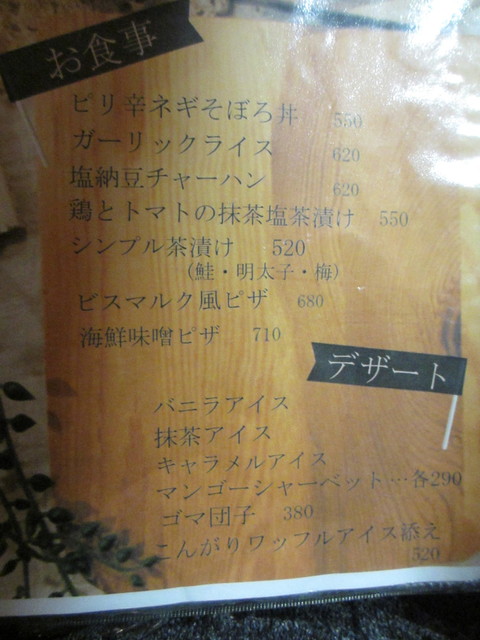 お食事
ピリ辛ネギそぼろ丼 550
ガーリックライス 620
塩納豆チャーハン 620
鶏とトマトの抹茶塩茶漬け 550
シンプル茶漬け 520
（鮭・明太子・梅）
ビスマルク風ピザ 680
海鮮味噌ピザ 710
デザート
バニラアイス
抹茶アイス
キャラメルアイス
マンゴーシャーベット…各290
ゴマ団子 380
こんがりワッフルアイス添え
520